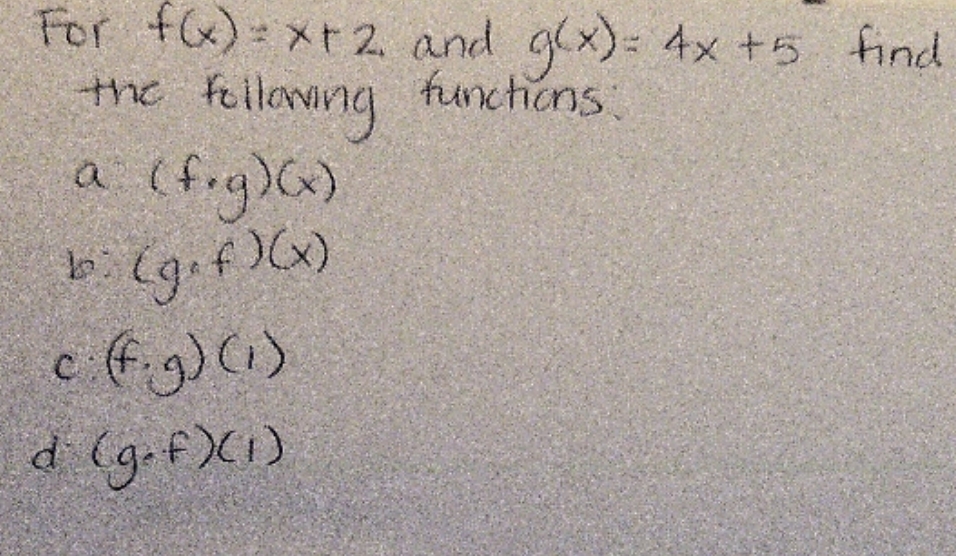 For f(x) = x+2 and g(x) = 4x + 5 find
the following functions:
a: (f∘g)(x)
b: (g∘f)(x)
c: (f∘g)(1)
d: (g∘f)(1)